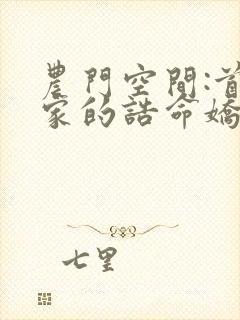 農門空間:首
家的誥命嬌
七里